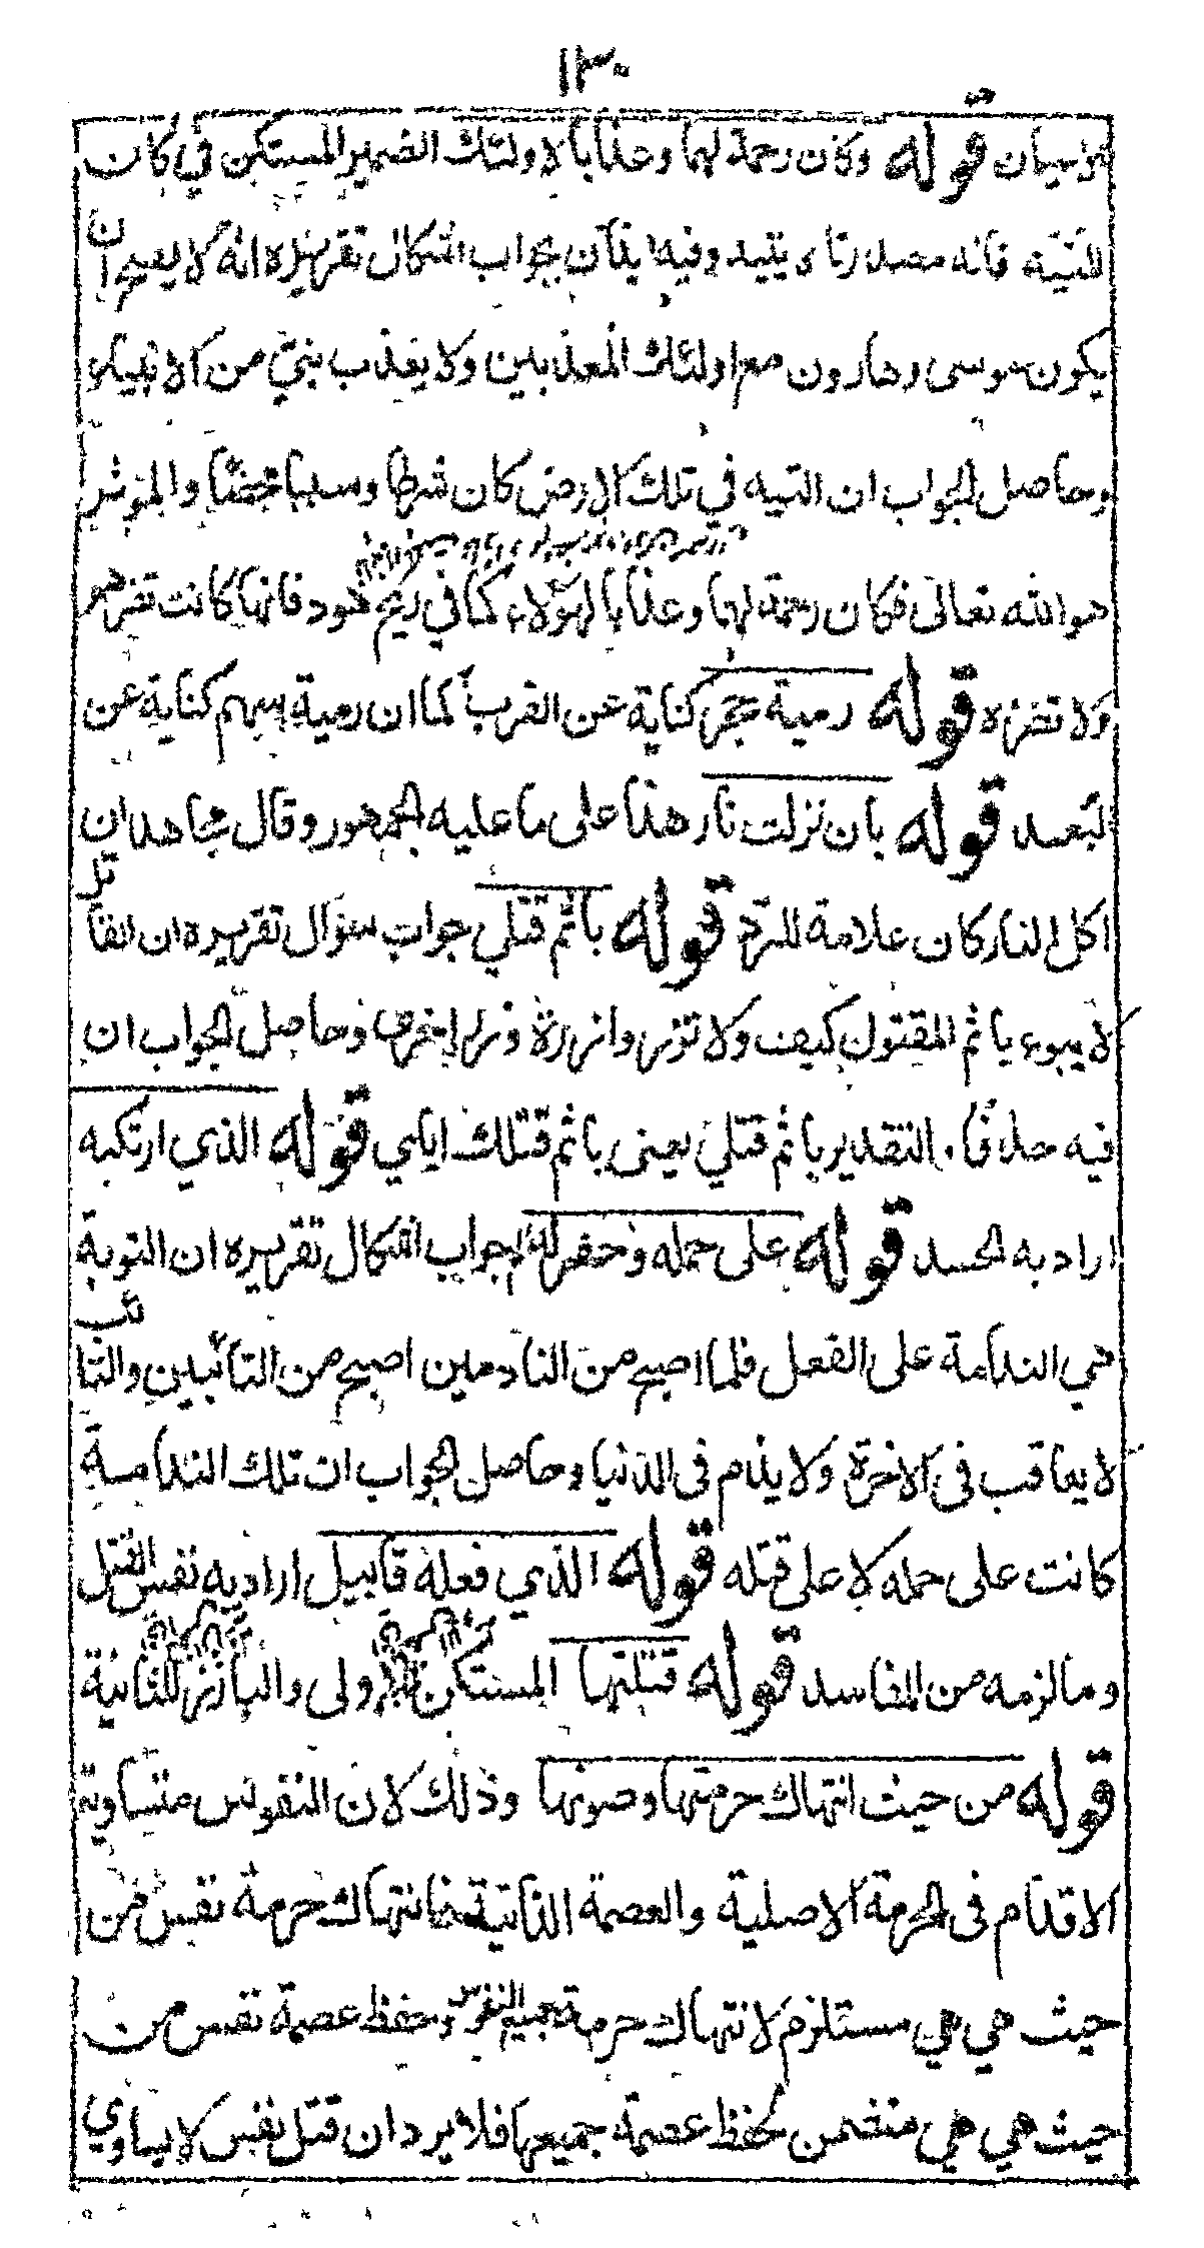 ١٣٠
قوله وكان رحمة لهما وعذابا لاولئك الضمير المستكن في كان
للتيه فانه مصدر تاه يتيه وفيه ايذان بجواب اشكال تقريره انه لا يصح ان
يكون موسى وهارون مع اولئك المعذبين ولا يعذب نبي من الانبياء
وحاصل الجواب ان التيه في تلك الارض كان شرطا وسببا محضا والمؤثر
هو الله تعالى فكان رحمة لهما وعذابا لهؤلاء كما في ريح هود فانها كانت تضرهم
ولا تضره قوله رمية حجر كناية عن القرب كما ان رمية سهم كناية عن
البعد قوله بان نزلت نار هذا على ما عليه الجمهور وقال مجاهد ان
اكل النار كان علامة للرد قوله باثم قتلي جواب سؤال تقريره ان القاتل
لا يبوء باثم المقتول كيف ولا تزر وازرة وزر اخرى وحاصل الجواب ان
فيه حذفا والتقدير باثم قتلي يعنى باثم قتلك اياي قوله الذي ارتكبه
اراد به الحسد قوله على حمله وحفر له جواب اشكال تقريره ان التوبة
هي الندامة على الفعل فلما اصبح من النادمين اصبح من التائبين والتائب
لا يعاقب في الاخرة ولا يذم في الدنيا وحاصل الجواب ان تلك الندامة
كانت على حمله لا على قتله قوله الذي فعله قابيل اراد به نفس القتل
وما لزمه من المفاسد قوله قتلتها المستكن للاولى والبارز للثانية
قوله من حيث انتهاك حرمتها وصونها وذلك لان النفوس متساوية
الاقدام في الحرمة الاصلية والعصمة الذاتية فانتهاك حرمة نفس من
حيث هي هي مستلزم لانتهاك حرمة جميع النفوس وحفظ عصمة نفس من
حيث هي هي متضمن لحفظ عصمة جميعها فلا يرد ان قتل نفس لا يساوي